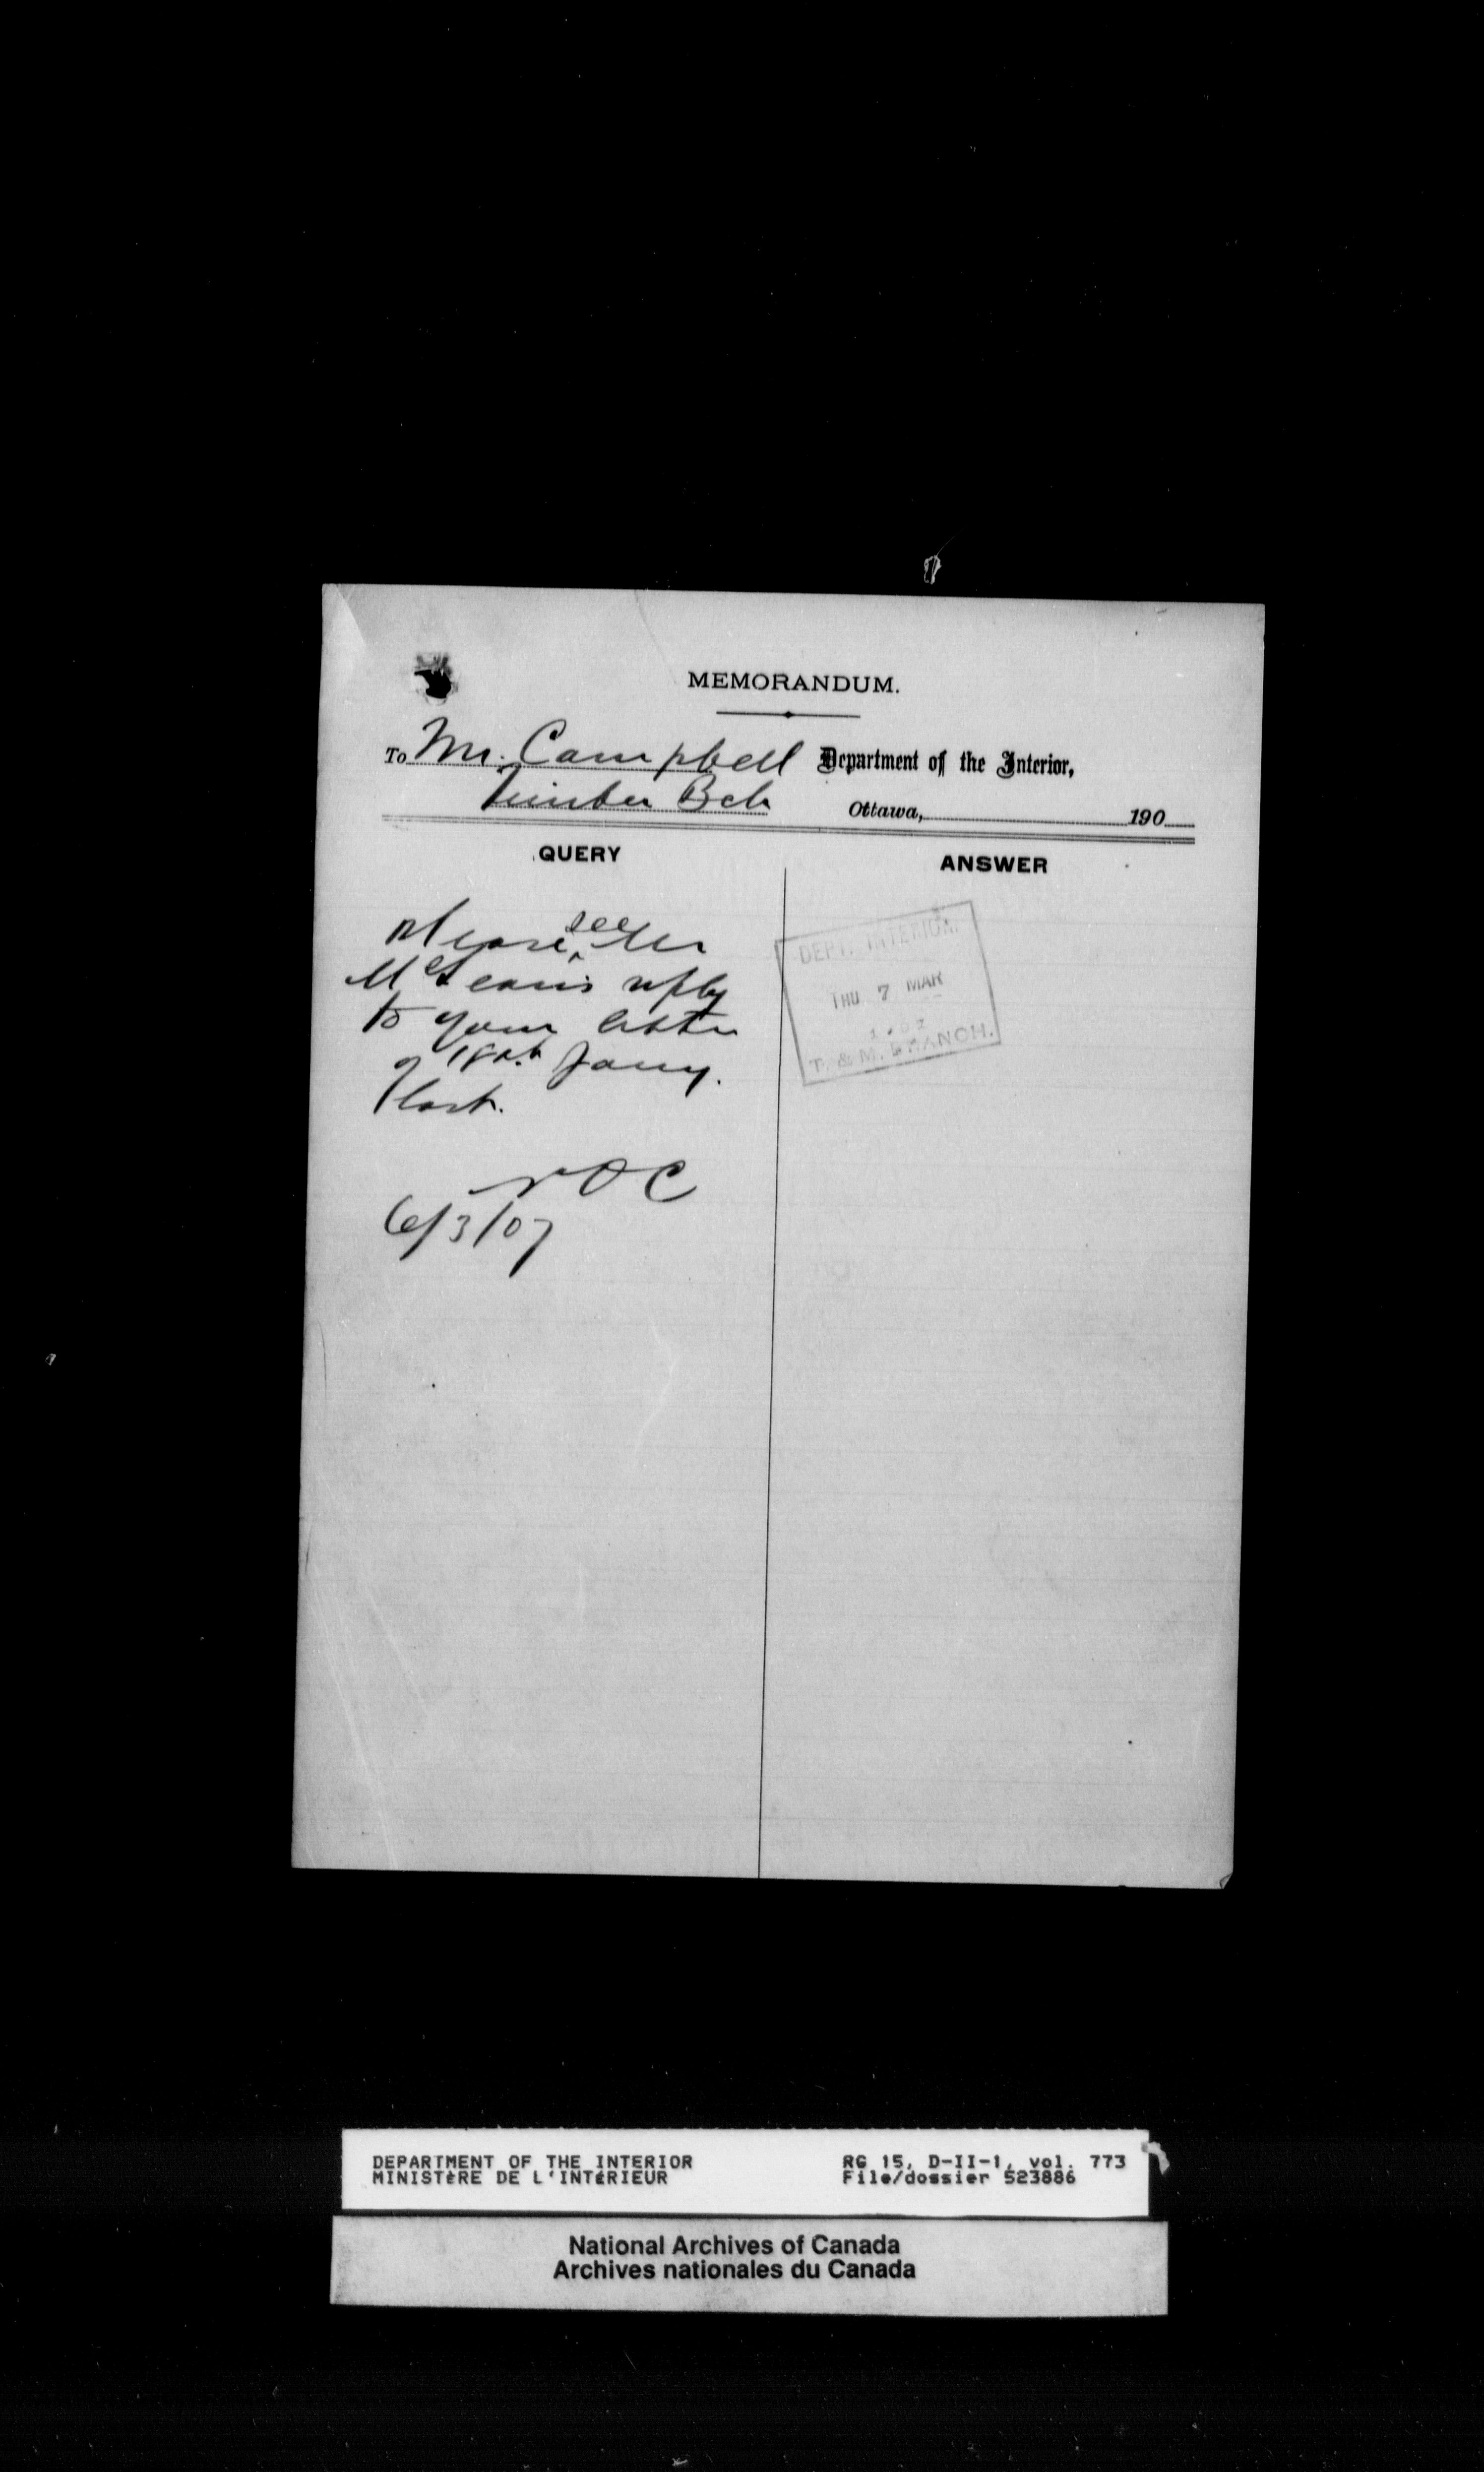 MEMORANDUM.
To Mr. Campbell Department of the Interior,
Timber Bch Ottawa, 190
QUERY
ANSWER
Please see Mr
McLean's reply
to your letter
of 18th Jany.
last.
6/3/07
DEPT. INTERIOR.
THU 7 MAR
1907
T. & M. BRANCH.
DEPARTMENT OF THE INTERIOR RG 15, D-II-1, vol. 773
MINISTÈRE DE L'INTÉRIEUR File/dossier 523886
National Archives of Canada
Archives nationales du Canada